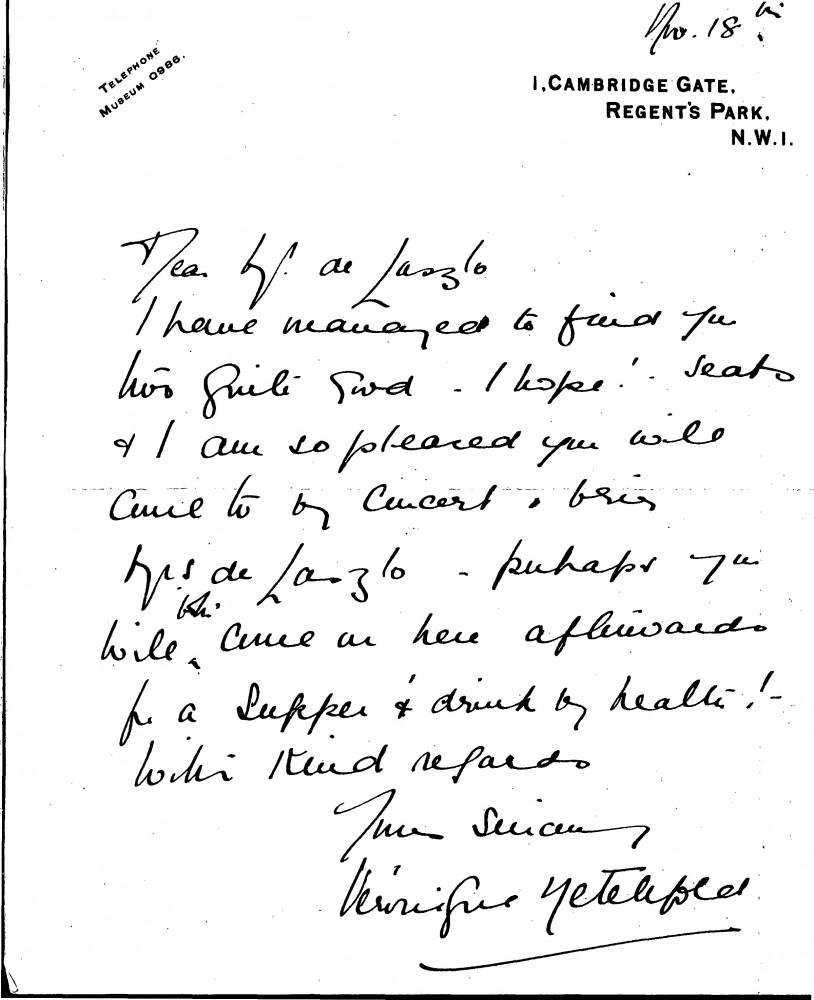 Nov. 18th
TELEPHONE
MUSEUM 0986.
1, CAMBRIDGE GATE,
REGENT'S PARK,
N.W.1.
Dear Mr. de Laszlo
I have managed to find you
two quite good - I hope! - seats
& I am so pleased you will
come to my concert & bring
Mrs de Laszlo - perhaps you
will, come on here afterwards
for a supper & drink my health! -
With kind regards
Yours Sincerely
Véronique